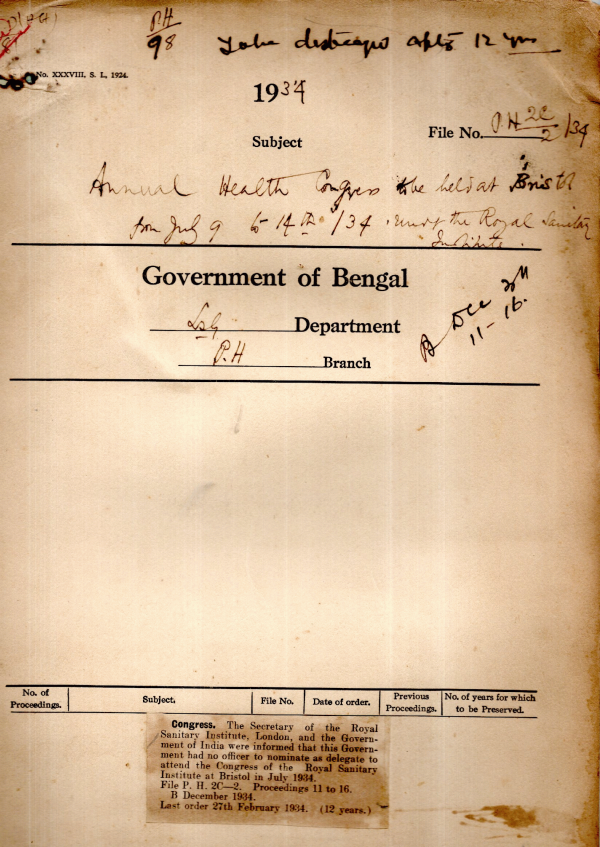 P.H
98
To be destroyed after 12 yrs
No. XXXVIII, S. L, 1924.
1934
File No. P.H 2C/2 /34
Subject
Annual Health Congress to be held at Bristol
from July 9 to 14th /34 under the Royal Sanitary
Institute.
Government of Bengal
LSG Department
P.H Branch
B Dec 34
11-16.
No. of Proceedings. Subject. File No. Date of order. Previous Proceedings. No. of years for which to be Preserved.
Congress. The Secretary of the Royal
Sanitary Institute, London, and the Govern-
ment of India were informed that this Govern-
ment had no officer to nominate as delegate to
attend the Congress of the Royal Sanitary
Institute at Bristol in July 1934.
File P. H. 2C—2. Proceedings 11 to 16.
B December 1934.
Last order 27th February 1934. (12 years.)